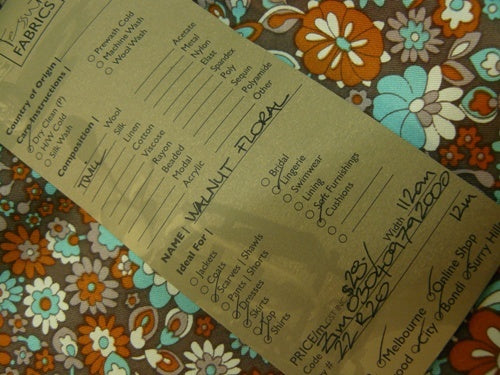 FABRICS
Country of Origin |
Care Instructions |
Dry Clean (P)
H/W Cold
Silk Wash
Prewash Cold
Machine Wash
Wool Wash
Composition |
Wool
Silk
Linen
Cotton
Viscose
Rayon
Beaded
Modal
Acrylic
Acetate
Metal
Nylon
Elast
Spandex
Poly
Sequin
Polyamide
Other
NAME | WALNUT FLORAL
Ideal For |
Jackets
Coats
Scarves | Shawls
Pants | Shorts
Dresses
Skirts
Top
Shirts
Bridal
Lingerie
Swimwear
Lining
Soft Furnishings
Cushions
PRICE/m
$28
Width 112cm
Code
12m
Melbourne
Online Shop
City
Bondi
Surry Hill